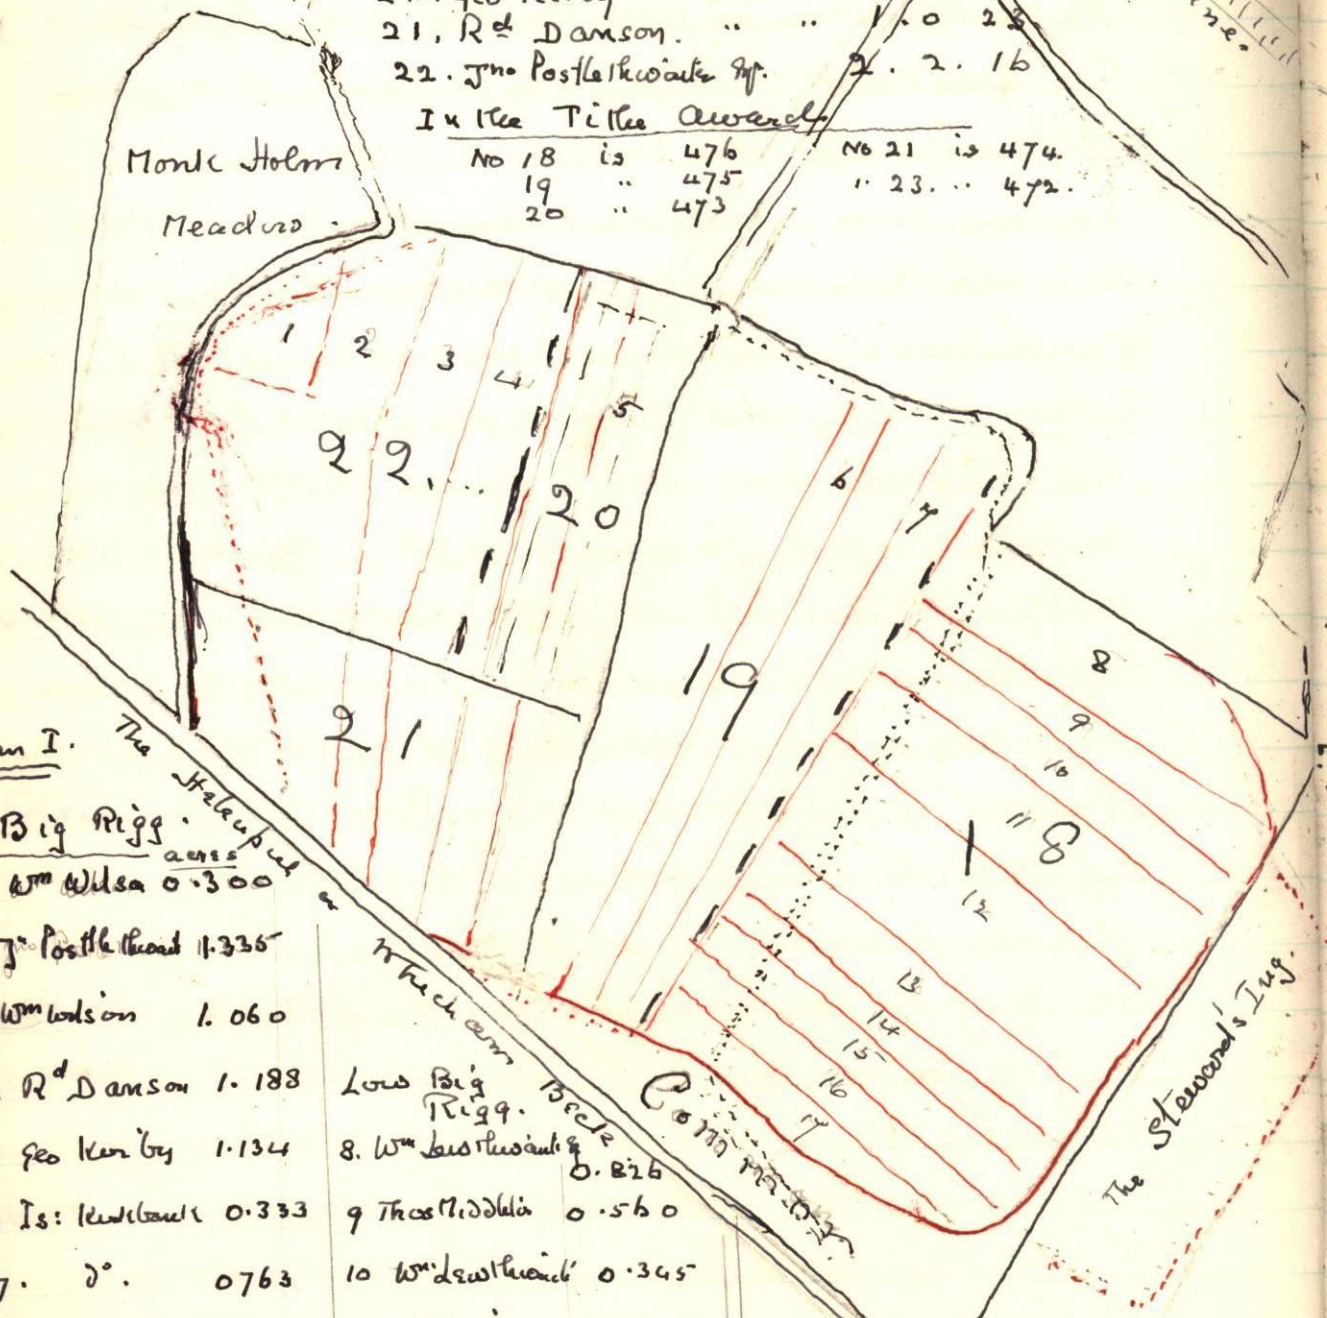 21. Rd Danson. " " 1. 0 23
22. Jno Postlethwaite 2. 2. 16
In the Tithe Award
No 18 is 476 No 21 is 474.
19 " 475 " 23. " 472.
20 " 473
Monk Holm
Meadow
1
2
3
4
5
22
20
6
7
19
21
8
9
10
18
12
13
14
15
16
17
The or Whicham Beck
Common
The Steward's Ing.
I.
Big Rigg.
acres
Wm Wilson 0.300
Jn Postlethwait 1.335
Wm Wilson 1.060
Rd Danson 1.188
Geo Kirby 1.134
Is: Kirkbank 0.333
7. Do. 0763
Low Big
Rigg.
8. Wm Lewthwaite
0.826
9 Thos Middleton 0.560
10 Wm Lewthwaite 0.345